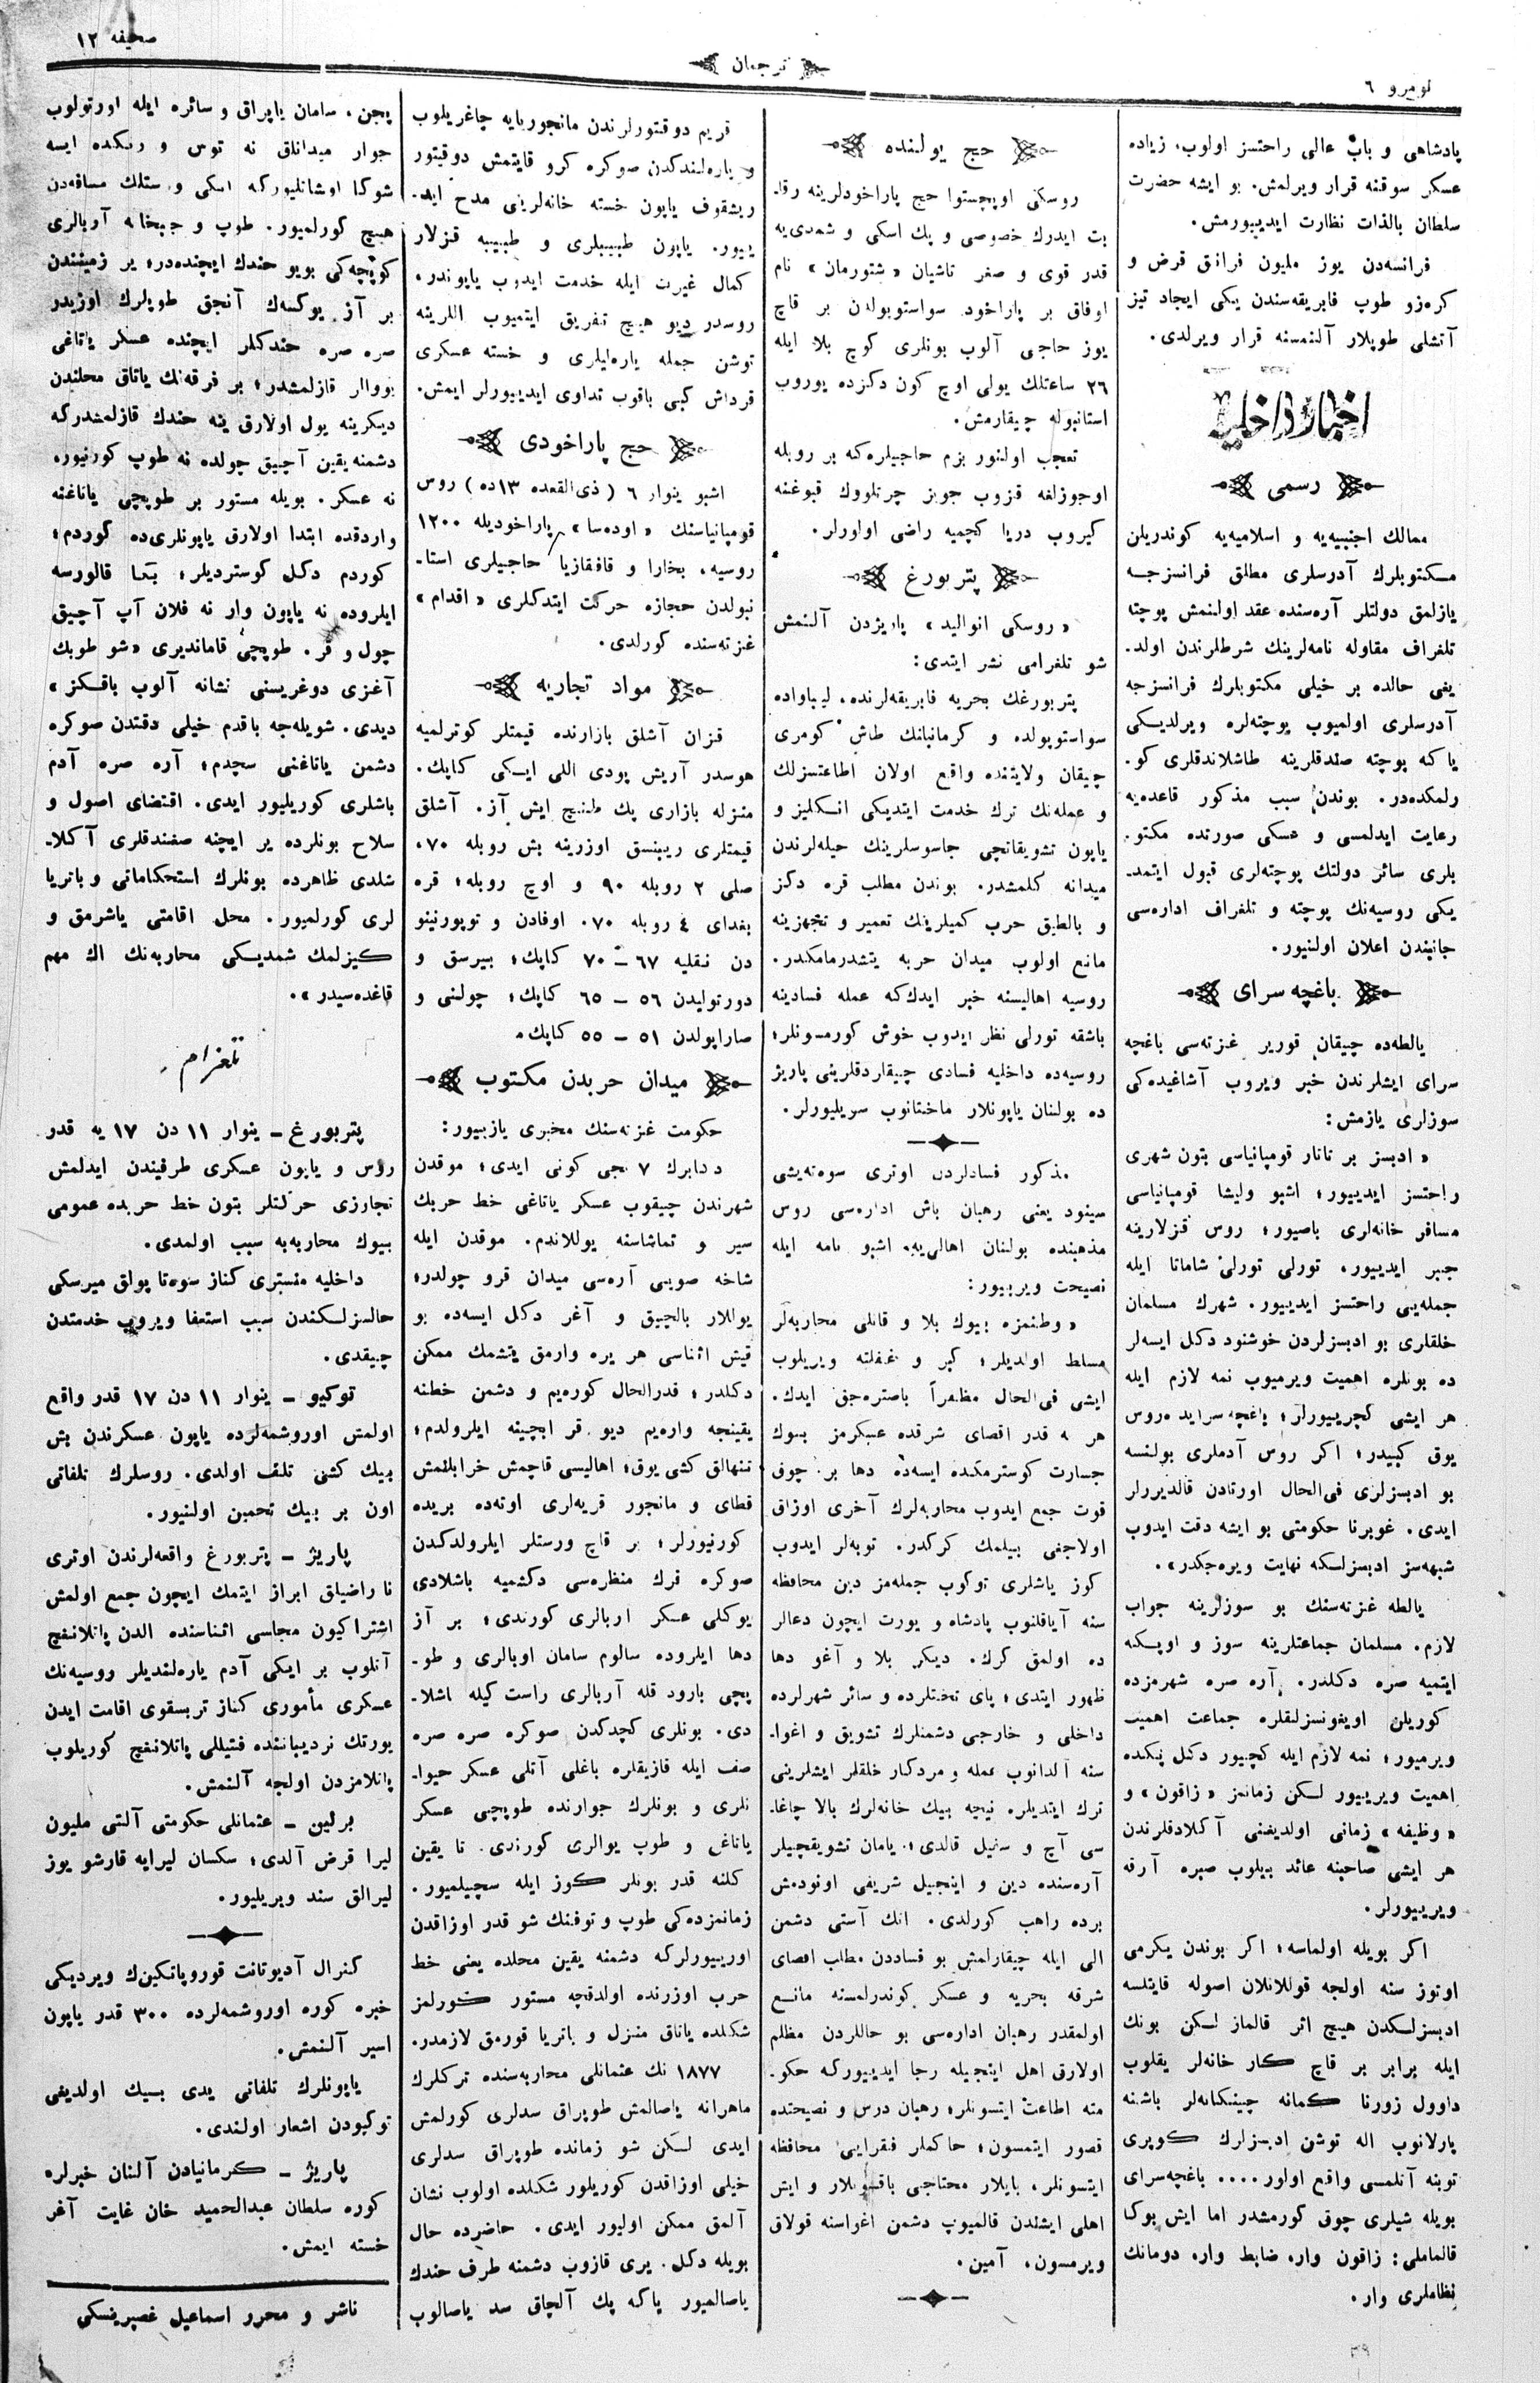 نومرو ٦
ترجمان
صحیفه ١٢
پادشاهی و باب عالی راحتسز اولوب، زیاده
عسکر سوقنه قرار ویرلمش. بو ایشه حضرت
سلطان بالذات نظارت ایدییورمش.
فرانسه‌دن یوز ملیون فرانق قرض و
کره‌زو طوپ فابریقه‌سندن یکی ایجاد تیز
آتشلی طوپلار آلنمسنه قرار ویرلدی.
اخبار داخلیه
رسمی
ممالك اجنبیه‌یه و اسلامیه‌یه کوندریلن
مکتوبلرك آدرسلری مطلق فرانسزجه
یازلمق دولتلر آره‌سنده عقد اولنمش پوچته
تلغراف مقاوله نامه‌لرینك شرطلرندن اولد-
یغی حالده بر خیلی مکتوبلرك فرانسزجه
آدرسلری اولمیوب پوچته‌لره ویرلدیکی
یاکه پوچته صندقلرینه طاشلاندقلری کو-
رلمکده‌در. بوندن سبب مذکور قاعده‌یه
رعایت ایدلمسی و عکسی صورتده مکتو-
بلری سائر دولتك پوچته‌لری قبول ایتمد-
یکی روسیه‌نك پوچته و تلغراف اداره‌سی
جانبندن اعلان اولنیور.
باغچه سرای
یالطه‌ده چیقان قوریر غزته‌سی باغچه
سرای ایشلرندن خبر ویروب آشاغیده‌کی
سوزلری یازمش:
« ادبسز بر تاتار قومپانیاسی بتون شهری
راحتسز ایدییور؛ اشبو ولیشا قومپانیاسی
مسافر خانه‌لری باصیور؛ روس قزلارینه
جبر ایدییور، تورلی تورلی شاماتا ایله
جمله‌یی راحتسز ایدییور. شهرك مسلمان
خلقلری بو ادبسزلردن خوشنود دکل ایسه‌لر
ده بونلره اهمیت ویرمیوب نمه لازم ایله
هر ایشی کچرییورلر؛ باغچه سرایده روس
یوق کبیدر؛ اکر روس آدملری بولنسه
بو ادبسزلری فی‌الحال اورتادن قالدیررلر
ایدی. غوبرنا حکومتی بو ایشه دقت ایدوب
شبهه‌سز ادبسزلکه نهایت ویره‌جکدر».
یالطه غزته‌سنك بو سوزلرینه جواب
لازم. مسلمان جماعتلرینه سوز و اوپکه
ایتمیه صره دکلدر. آره صره شهرمزده
کوریلن اویغونسزلقلره جماعت اهمیت
ویرمیور؛ نمه لازم ایله کچییور دکل پکده
اهمیت ویرییور لکن زمانمز « زاقون» و
« وظیفه» زمانی اولدیغنی آکلادقلرندن
هر ایشی صاحبنه عائد بیلوب صبره آرقه
ویرییورلر.
اکر بویله اولماسه؛ اکر بوندن یکرمی
اوتوز سنه اولجه قوللانلان اصوله قایتلسه
ادبسزلکدن هیچ اثر قالماز لکن بونك
ایله برابر بر قاچ کار خانه‌لر یقلوب
داوول زورنا کمانه چینکانه‌لر باشنه
پارلانوب اله توشن ادبسزلرك کوپری
توبنه آتلمسی واقع اولور.... باغچه‌سرای
بویله شیلری چوق کورمشدر اما ایش بوکا
قالماملی: زاقون وار، ضابط وار، دومانك
نظاملری وار.
حج یولنده
روسکی اوبچستوا حج پاراخودلرینه رقا-
بت ایدرك خصوصی و پك اسکی و شمدی‌یه
قدر قوی و صغر تاشیان « شتورمان» نام
اوفاق بر پاراخود سواستوپولدن بر قاچ
یوز حاجی آلوب بونلری کوچ بلا ایله
٢٦ ساعتلك یولی اوچ کون دکزده یوروب
استانبوله چیقارمش.
تعجب اولنور بزم حاجیلره‌که بر روبله
اوجوزلغه قزوب جویز چرنلووك قبوغنه
کیروب دریا کچمیه راضی اولورلر.
پتربورغ
« روسکی انوالید» پاریژدن آلنمش
شو تلغرامی نشر ایتدی:
پتربورغك بحریه فابریقه‌لرنده، لیباواده
سواستوپولده و کرمانیانك طاش کومری
چیقان ولایتنده واقع اولان اطاعتسزلك
و عمله‌نك ترك خدمت ایتدیکی انکلیز و
یاپون تشویقاتچی جاسوسلرینك حیله‌لرندن
میدانه کلمشدر. بوندن مطلب قره دکز
و بالطق حرب کمیلرینك تعمیر و تجهزینه
مانع اولوب میدان حربه یتشدرمامکدر.
روسیه اهالیسنه خبر ایدك‌که عمله فسادینه
باشقه تورلی نظر ایدوب خوش کورمسونلر؛
روسیه‌ده داخلیه فسادی چیقاردقلرینی پاریژ
ده بولنان یاپونلار ماختانوب سویلیورلر.
مذکور فسادلردن اوتری سوه‌ته‌یشی
سینود یعنی رهبان باش اداره‌سی روس
مذهبنده بولنان اهالی‌یه، اشبو نامه ایله
نصیحت ویرییور:
« وطنمزه بیوك بلا و قانلی محاربه‌لر
مسلط اولدیلر؛ کبر و غفلته ویریلوب
ایشی فی‌الحال مظفراً باصتره‌جق ایدك.
هر نه قدر اقصای شرقده عسکرمز بیوك
جسارت کوسترمکده ایسه‌ده دها بر چوق
قوت جمع ایدوب محاربه‌لرك آخری اوزاق
اولاجغی بیلمك کرکدر. توبه‌لر ایدوب
کوز یاشلری توکوب جمله‌مز دین محافظه
سنه آیاقلنوب پادشاه و یورت ایچون دعالر
ده اولمق کرك. دیکر بلا و آغو دها
ظهور ایتدی؛ پای تختلرده و سائر شهرلرده
داخلی و خارجی دشمنلرك تشویق و اغوا-
سنه آلدانوب عمله و مردکار خلقلر ایشلرینی
ترك ایتدیلر. نیجه بیك خانه‌لرك بالا چاغا-
سی آچ و سفیل قالدی؛ یامان تشویقچیلر
آره‌سنده دین و اینجیل شریفی اونودمش
برده راهب کورلدی. انك آستی دشمن
الی ایله چیقارلمش بو فساددن مطلب اقصای
شرقه بحریه و عسکر کوندرلمسنه مانع
اولمقدر رهبان اداره‌سی بو حاللردن مظلم
اولارق اهل اینجیله رجا ایدییورکه حکو-
مته اطاعت ایتسونلر؛ رهبان درس و نصیحتده
قصور ایتمسون؛ حاکملر فقرایی محافظه
ایتسونلر، بایلار محتاجی باقسونلار و ایش
اهلی ایشندن قالمیوپ دشمن اغواسنه قولاق
ویرمسون، آمین.
قریم دوقتورلرندن مانجوریایه چاغریلوب
و یاره‌لندکدن صوکره کرو قایتمش دوقتور
ریشقوف یاپون خسته خانه‌لرینی مدح اید-
ییور. یاپون طبیبلری و طبیبه قزلار
کمال غیرت ایله خدمت ایدوب یاپوندر،
روسدر دیو هیچ تفریق ایتمیوب اللرینه
توشن جمله یاره‌لیلری و خسته عسکری
قرداش کبی باقوب تداوی ایدییورلر ایمش.
حج پاراخودی
اشبو ینوار ٦ ( ذی‌القعده ١٣ده) روس
قومپانیاسنك « اوده‌سا» پاراخودیله ١٢٠٠
روسیه، بخارا و قافقازیا حاجیلری استا-
نبولدن حجازه حرکت ایتدکلری « اقدام»
غزته‌سنده کورلدی.
مواد تجاریه
قزان آشلق بازارنده قیمتلر کوترلمیه
هوسدر آریش پودی اللی ایکی کاپك.
منزله بازاری پك طنچ ایش آز. آشلق
قیمتلری ریبنسق اوزرینه بش روبله ٧٠،
صلی ٢ روبله ٩٠ و اوچ روبله؛ قره
بغدای ٤ روبله ٧٠. اوفادن و توپورنینو
دن نقلیه ٦٧ – ٧٠ کاپك؛ بیرسق و
دورتولیدن ٥٦ – ٦٥ کاپك؛ چولنی و
صاراپولدن ٥١ – ٥٥ کاپك.
میدان حربدن مکتوب
حکومت غزته‌سنك مخبری یازییور:
دقابرك ٧ نجی کونی ایدی؛ موقدن
شهرندن چیقوب عسکر یاتاغی خط حربك
سیر و تماشاسنه یوللاندم. موقدن ایله
شاخه صویی آره‌سی میدان قرو چولدر؛
یوللار بالچیق و آغر دکل ایسه‌ده بو
قیش اثناسی هر یره وارمق یتشمك ممکن
دکلدر؛ قدرالحال کوره‌یم و دشمن خطنه
یقینجه واره‌یم دیو قر ایچینه ایلرولدم؛
تنهالق کشی یوق؛ اهالیسی قاچمش خرابلنمش
قطای و مانجور قریه‌لری اوته‌ده بریده
کورنیورلر؛ بر قاچ ورستلر ایلرولدکدن
صوکره قرك منظره‌سی دکشمیه باشلادی
یوکلی عسکر اربالری کورندی؛ بر آز
دها ایلروده سالوم سامان اوبالری و طو-
پچی بارود قله آربالری راست کیله باشلا-
دی. بونلری کچدکدن صوکره صره صره
صف ایله قازیقلره باغلی آتلی عسکر حیوا-
نلری و بونلرك جوارنده طوپچی عسکر
یاتاغی و طوپ یوالری کورندی. تا یقین
کلنه قدر بونلر کوز ایله سچیلمیور.
زمانمزده‌کی طوپ و توفنك شو قدر اوزاقدن
اورییورلرکه دشمنه یقین محلده یعنی خط
حرب اوزرنده اولدقچه مستور کورلمز
شکلده یاتاق منزل و باتریا قورمق لازمدر.
١٨٧٧ نك عثمانلی محاربه‌سنده ترکلرك
ماهرانه یاصالمش طوپراق سدلری کورلمش
ایدی لکن شو زمانده طوپراق سدلری
خیلی اوزاقدن کوریلور شکلده اولوب نشان
آلمق ممکن اولیور ایدی. حاضرده حال
بویله دکل. یری قازوب دشمنه طرف خندك
یاصالمیور یاکه پك آلچاق سد یاصالوب
پچن، سامان یاپراق و سائره ایله اورتولوب
جوار میداناق نه توس و رنکده ایسه
شوکا اوشانلیورکه ایکی ویستلك مسافه‌دن
هیچ کورلمیور. طوپ و جبخانه آربالری
کوپچه‌کی بویو حندك ایچنده‌در؛ یر زمیننندن
بر آز یوکسه‌ك آنجق طوپلرك اوزیدر
صره صره حندکلر ایچنده عسکر یاتاغی
یووالر قازلمشدر؛ بر فرقه‌نك یاتاق محلندن
دیکرینه یول اولارق ینه حندك قازلمشدرکه
دشمنه یقین آجیق چولده نه طوپ کورنیور،
نه عسکر. بویله مستور بر طوپچی یاتاغنه
واردقده ابتدا اولارق یاپونلری‌ده کوردم؛
کوردم دکل کوستردیلر؛ بکا قالورسه
ایلروده نه یاپون وار نه فلان آپ آچیق
چول و قر. طوپچی قامندیری « شو طوبك
آغزی دوغریسنی نشانه آلوب باقکز»
دیدی. شویله‌جه باقدم خیلی دقتدن صوکره
دشمن یاتاغنی سچدم؛ آره صره آدم
باشلری کوریلیور ایدی. اقتضای اصول و
سلاح بونلرده یر ایچنه صغندقلری آکلا-
شلدی ظاهرده بونلرك استحکاماتی و باتریا
لری کورلمیور. محل اقامتی یاشرمق و
کیزلمك شمدیکی محاربه‌نك اك مهم
قاعده‌سیدر».
تلغرام
پتربورغ – ینوار ١١ دن ١٧ یه قدر
روس و یاپون عسکری طرفیندن ایدلمش
تجاوزی حرکتلر بتون خط حربده عمومی
بیوك محاربه‌یه سبب اولمدی.
داخلیه منستری کناز سوه‌تا پولق میرسکی
حالسزلکندن سبب استعفا ویروب خدمتدن
چیقدی.
توکیو – ینوار ١١ دن ١٧ قدر واقع
اولمش اوروشمه‌لرده یاپون عسکرندن بش
بیك کشی تلف اولدی. روسلرك تلفاتی
اون بر بیك تخمین اولنیور.
پاریژ – پتربورغ واقعه‌لرندن اوتری
نا راضیلق ابراز ایتمك ایچون جمع اولمش
اشتراکیون مجلسی اثناسنده الدن پاتلانغچ
آتلوب بر ایکی آدم یاره‌لندیلر روسیه‌نك
عسکری مأموری کناز تربسقوی اقامت ایدن
یورتك نردیبانننده فتیللی پاتلانغچ کوریلوب
پاتلامزدن اولجه آلنمش.
برلین – عثمانلی حکومتی آلتی ملیون
لیرا قرض آلدی؛ سکسان لیرایه قارشو یوز
لیرالق سند ویریلیور.
کنرال آدیوتانت قوروپاتکین‌ك ویردیکی
خبره کوره اوروشمه‌لرده ٣٠٠ قدر یاپون
اسیر آلنمش.
یاپونلرك تلفاتی یدی بیك اولدیغی
توکیودن اشعار اولندی.
پاریژ – کرمانیادن آلنان خبرلره
کوره سلطان عبدالحمید خان غایت آغر
خسته ایمش.
ناشر و محرر اسماعیل غصپرینسکی